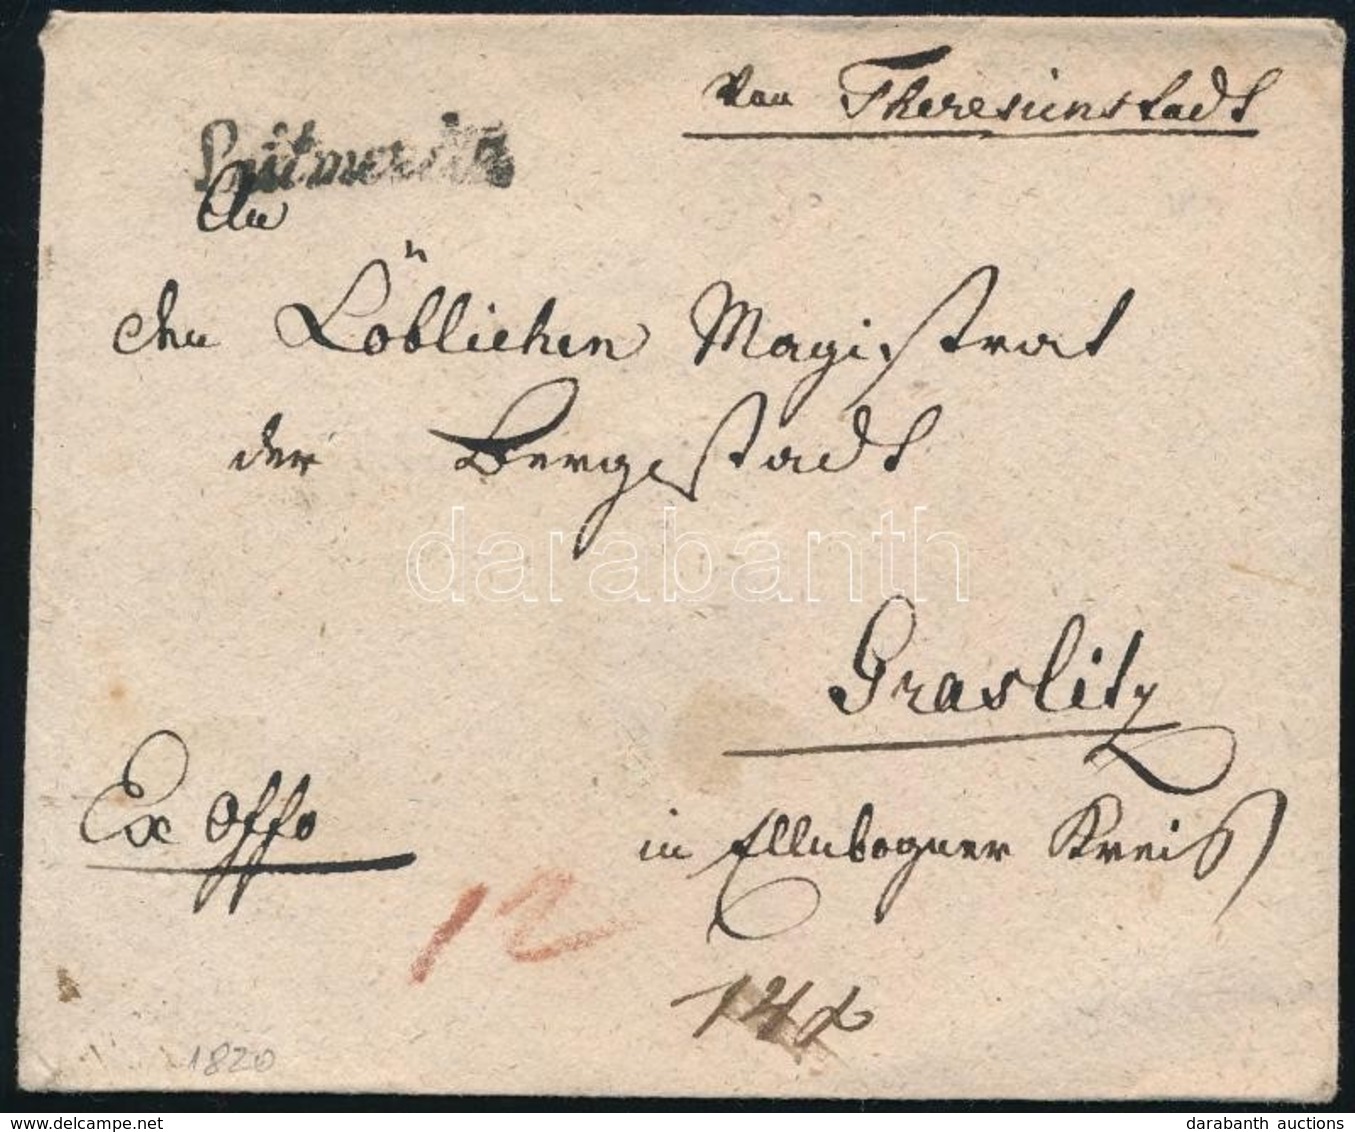 von Theresienstadt
Leitmeritz
An
den Löblichen Magistrat
der Bergstadt
darabanth
Graslitz
Ex offo
in Ellnbogner Kreis
12
1820
darabanth auctions
www.delcampe.net